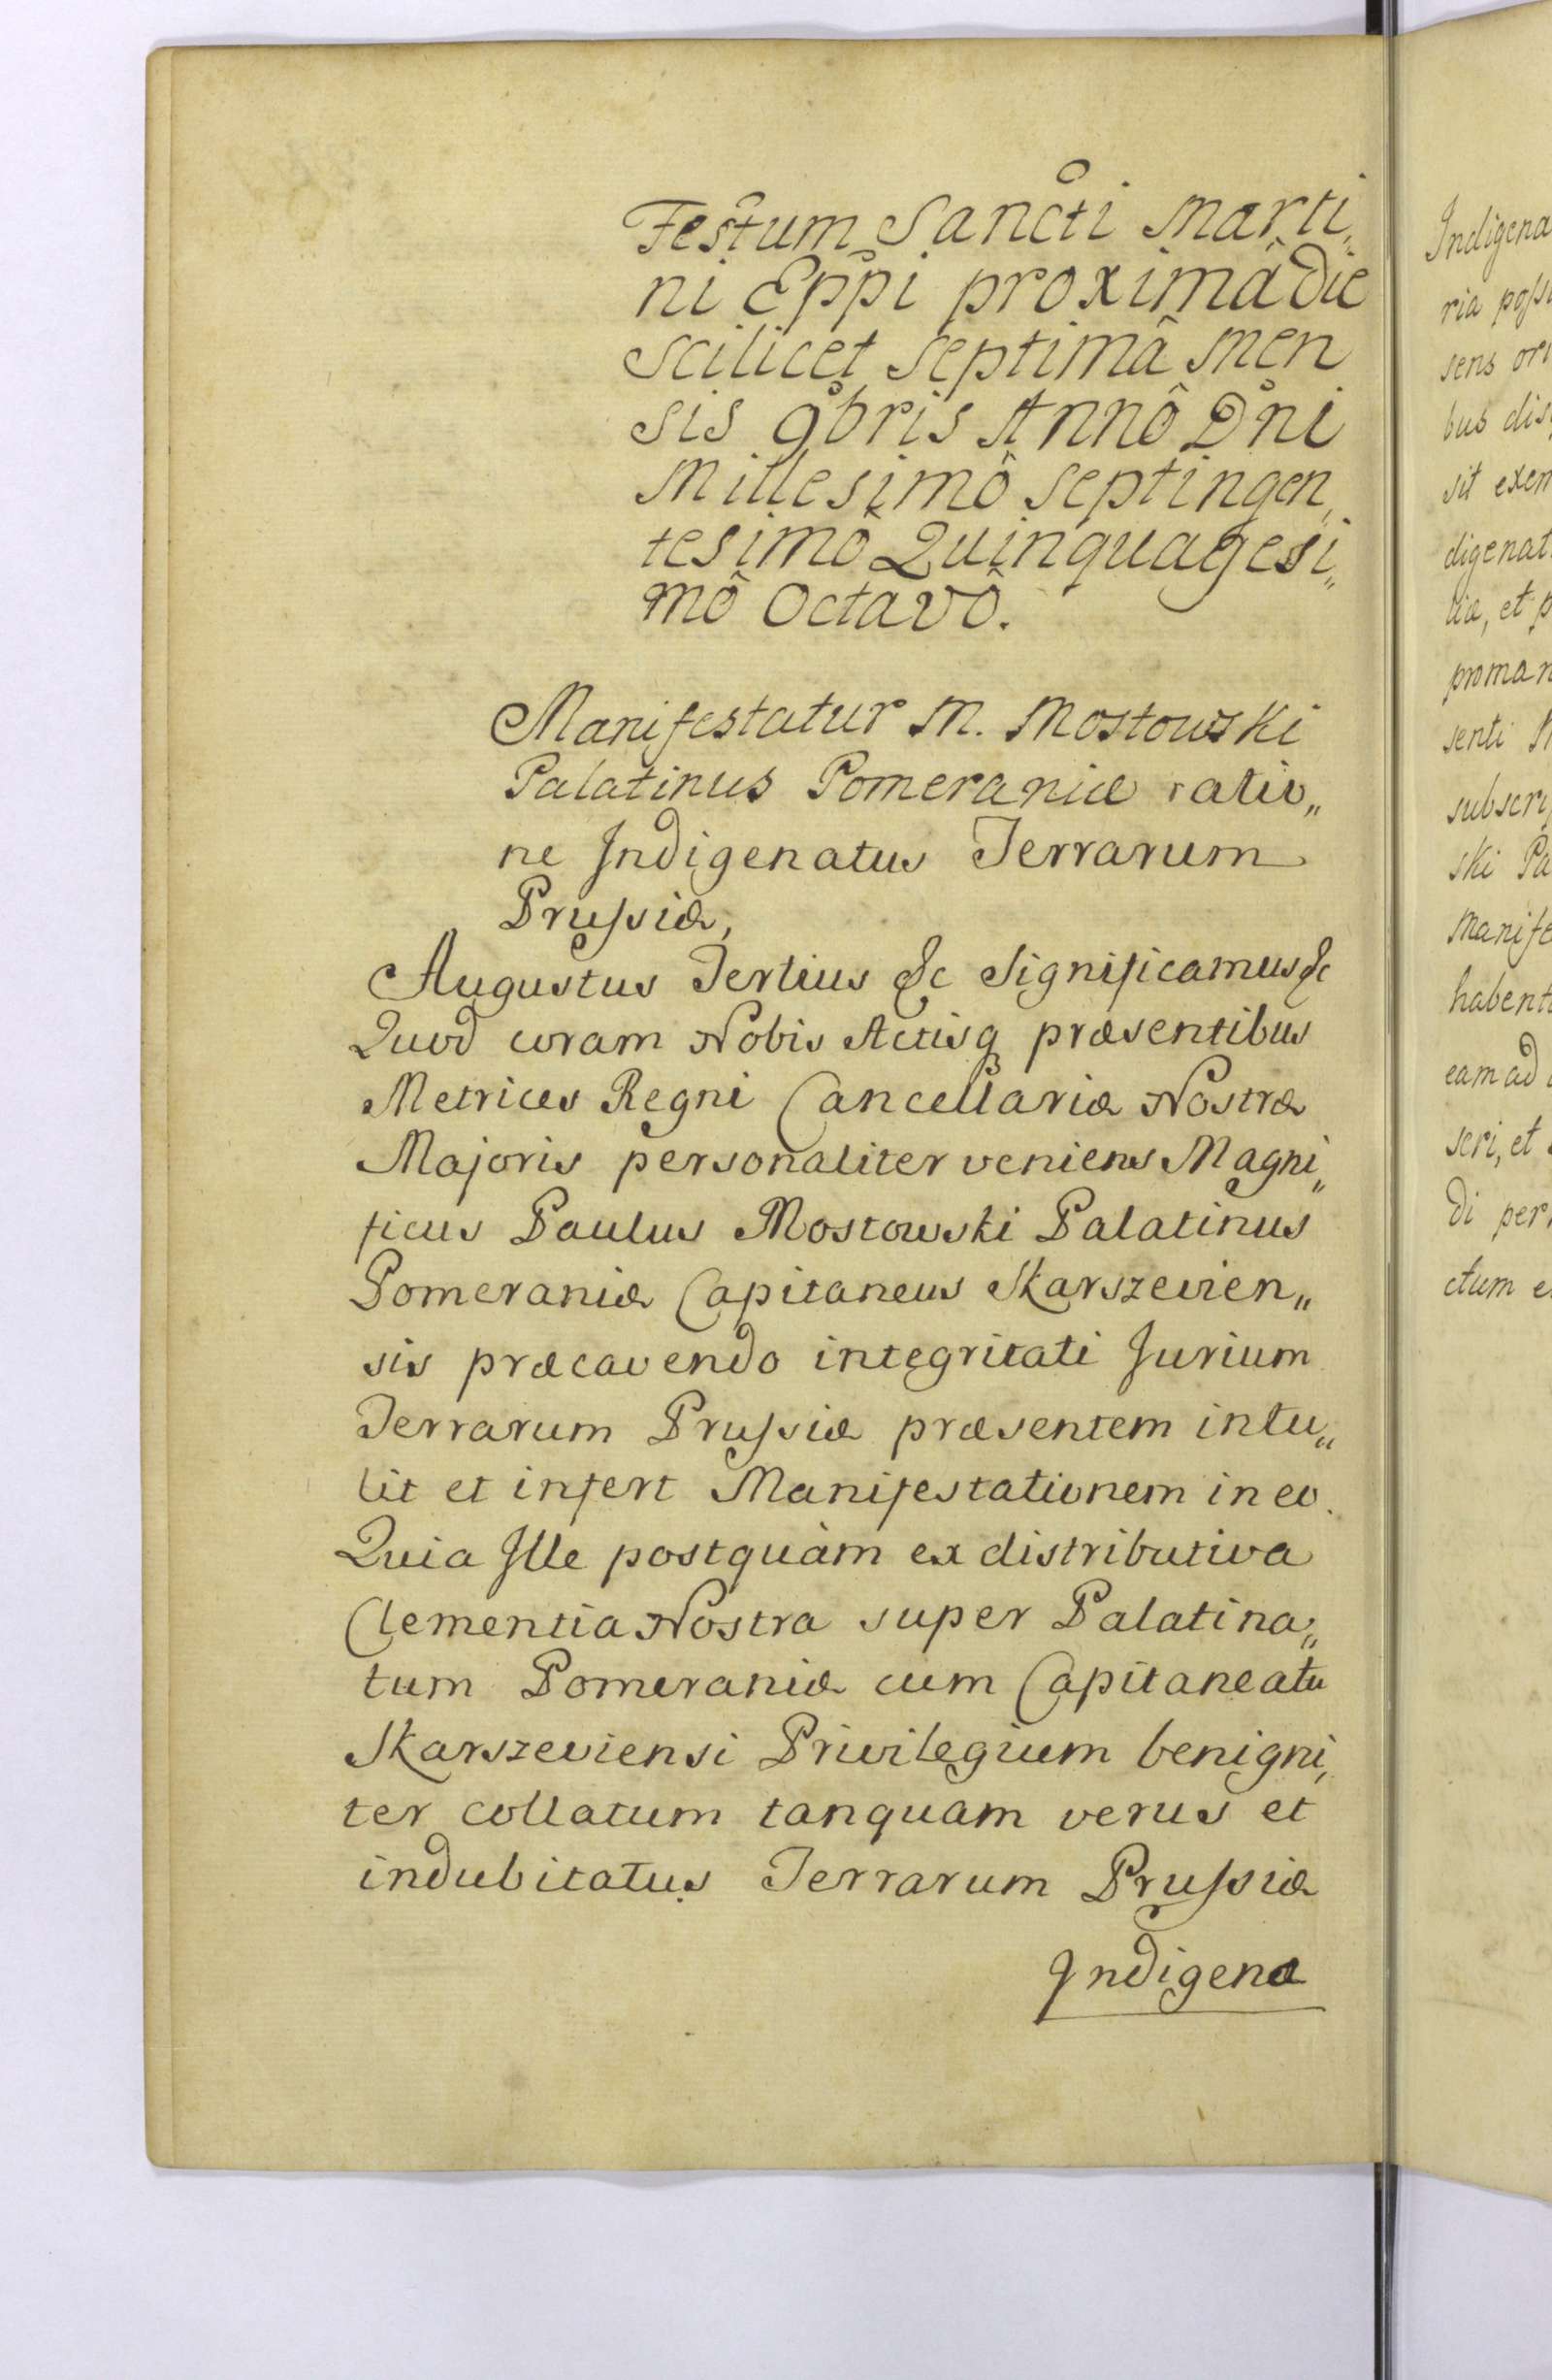 Festum Sancti Marti„
ni Eppi proximâ die
Scilicet Septimâ Men
sis 9bris Annô Dni
Millesimô Septingen„
tesimô Quinquagesi„
mô Octavô.
Manifestatur M. Mostowski
Palatinus Pomeraniæ ratio„
ne Indigenatus Terrarum
Prussiæ,
Augustus Tertius &c Significamus &c
Quod coram Nobis Actisq præsentibus
Metrices Regni Cancellariæ Nostræ
Majoris personaliter veniens Magni„
ficus Paulus Mostowski Palatinus
Pomeraniæ Capitaneus Skarszevien„
sis præcavendo integritati Jurium
Terrarum Prussiæ præsentem intu„
lit et infert Manifestationem in eo.
Quia Ille postquàm ex distributiva
Clementia Nostra super Palatina„
tum Pomeraniæ cum Capitaneatu
Skarszeviensi Privilegium benigni„
ter collatum tanquam verus et
indubitatus Terrarum Prussiæ
Indigena
Indigena
ria
sens
bus
sit
digenat
tia, et
senti
subscri
ski Pa
Manife
habent
eam ad
seri, et
di per
ctum